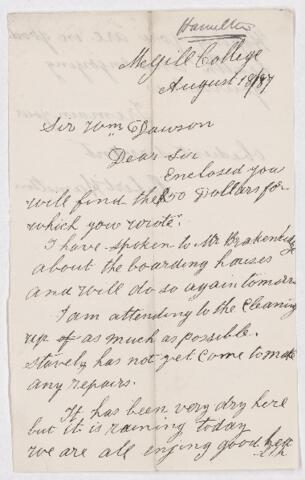 Hamilton
McGill College
August 18/87
Sir Wm Dawson
Dear Sir
Enclosed you
will find the 50 Dollars for
which you wrote.
I have spoken to Mr Brakenridge
about the boarding houses
and will do so again tomorrow
I am attending to the cleaning
up of as much as possible.
Stavely has not yet come to make
any repairs.
It has been very dry here
but it is raining today
we are all enjing good health